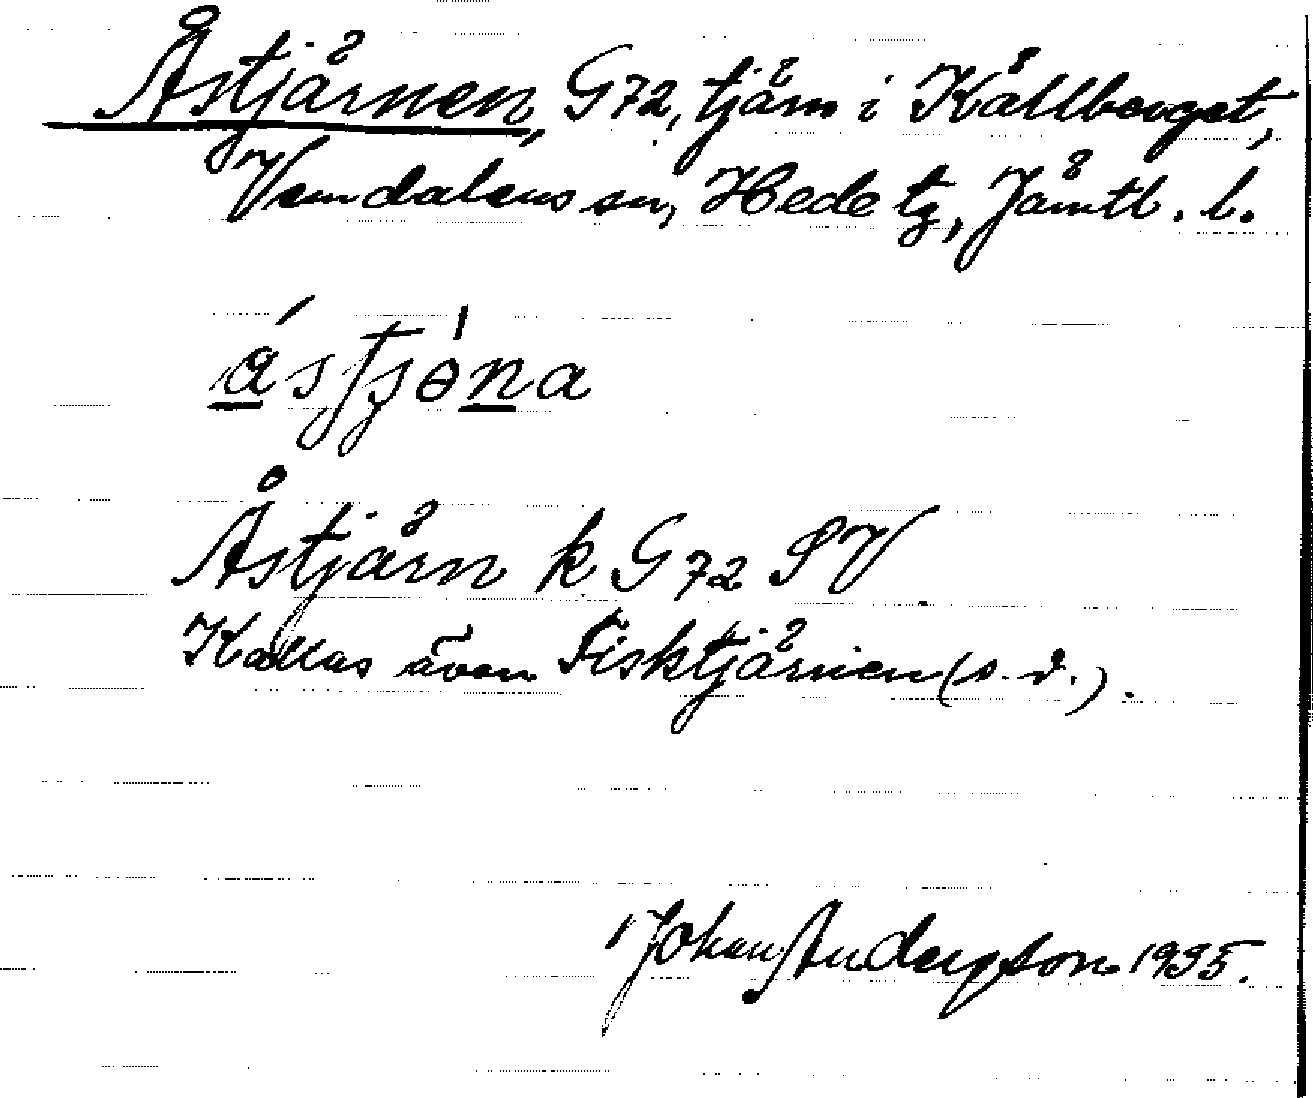 Åstjärnen, G72, tjärn i Källberget,
Vemdalens sn, Hede tg, Jämtl. l.
Åstjärn k G72 SV
Kallas även Fisktjärnen (s. d.).
Johan Anderson 1935.